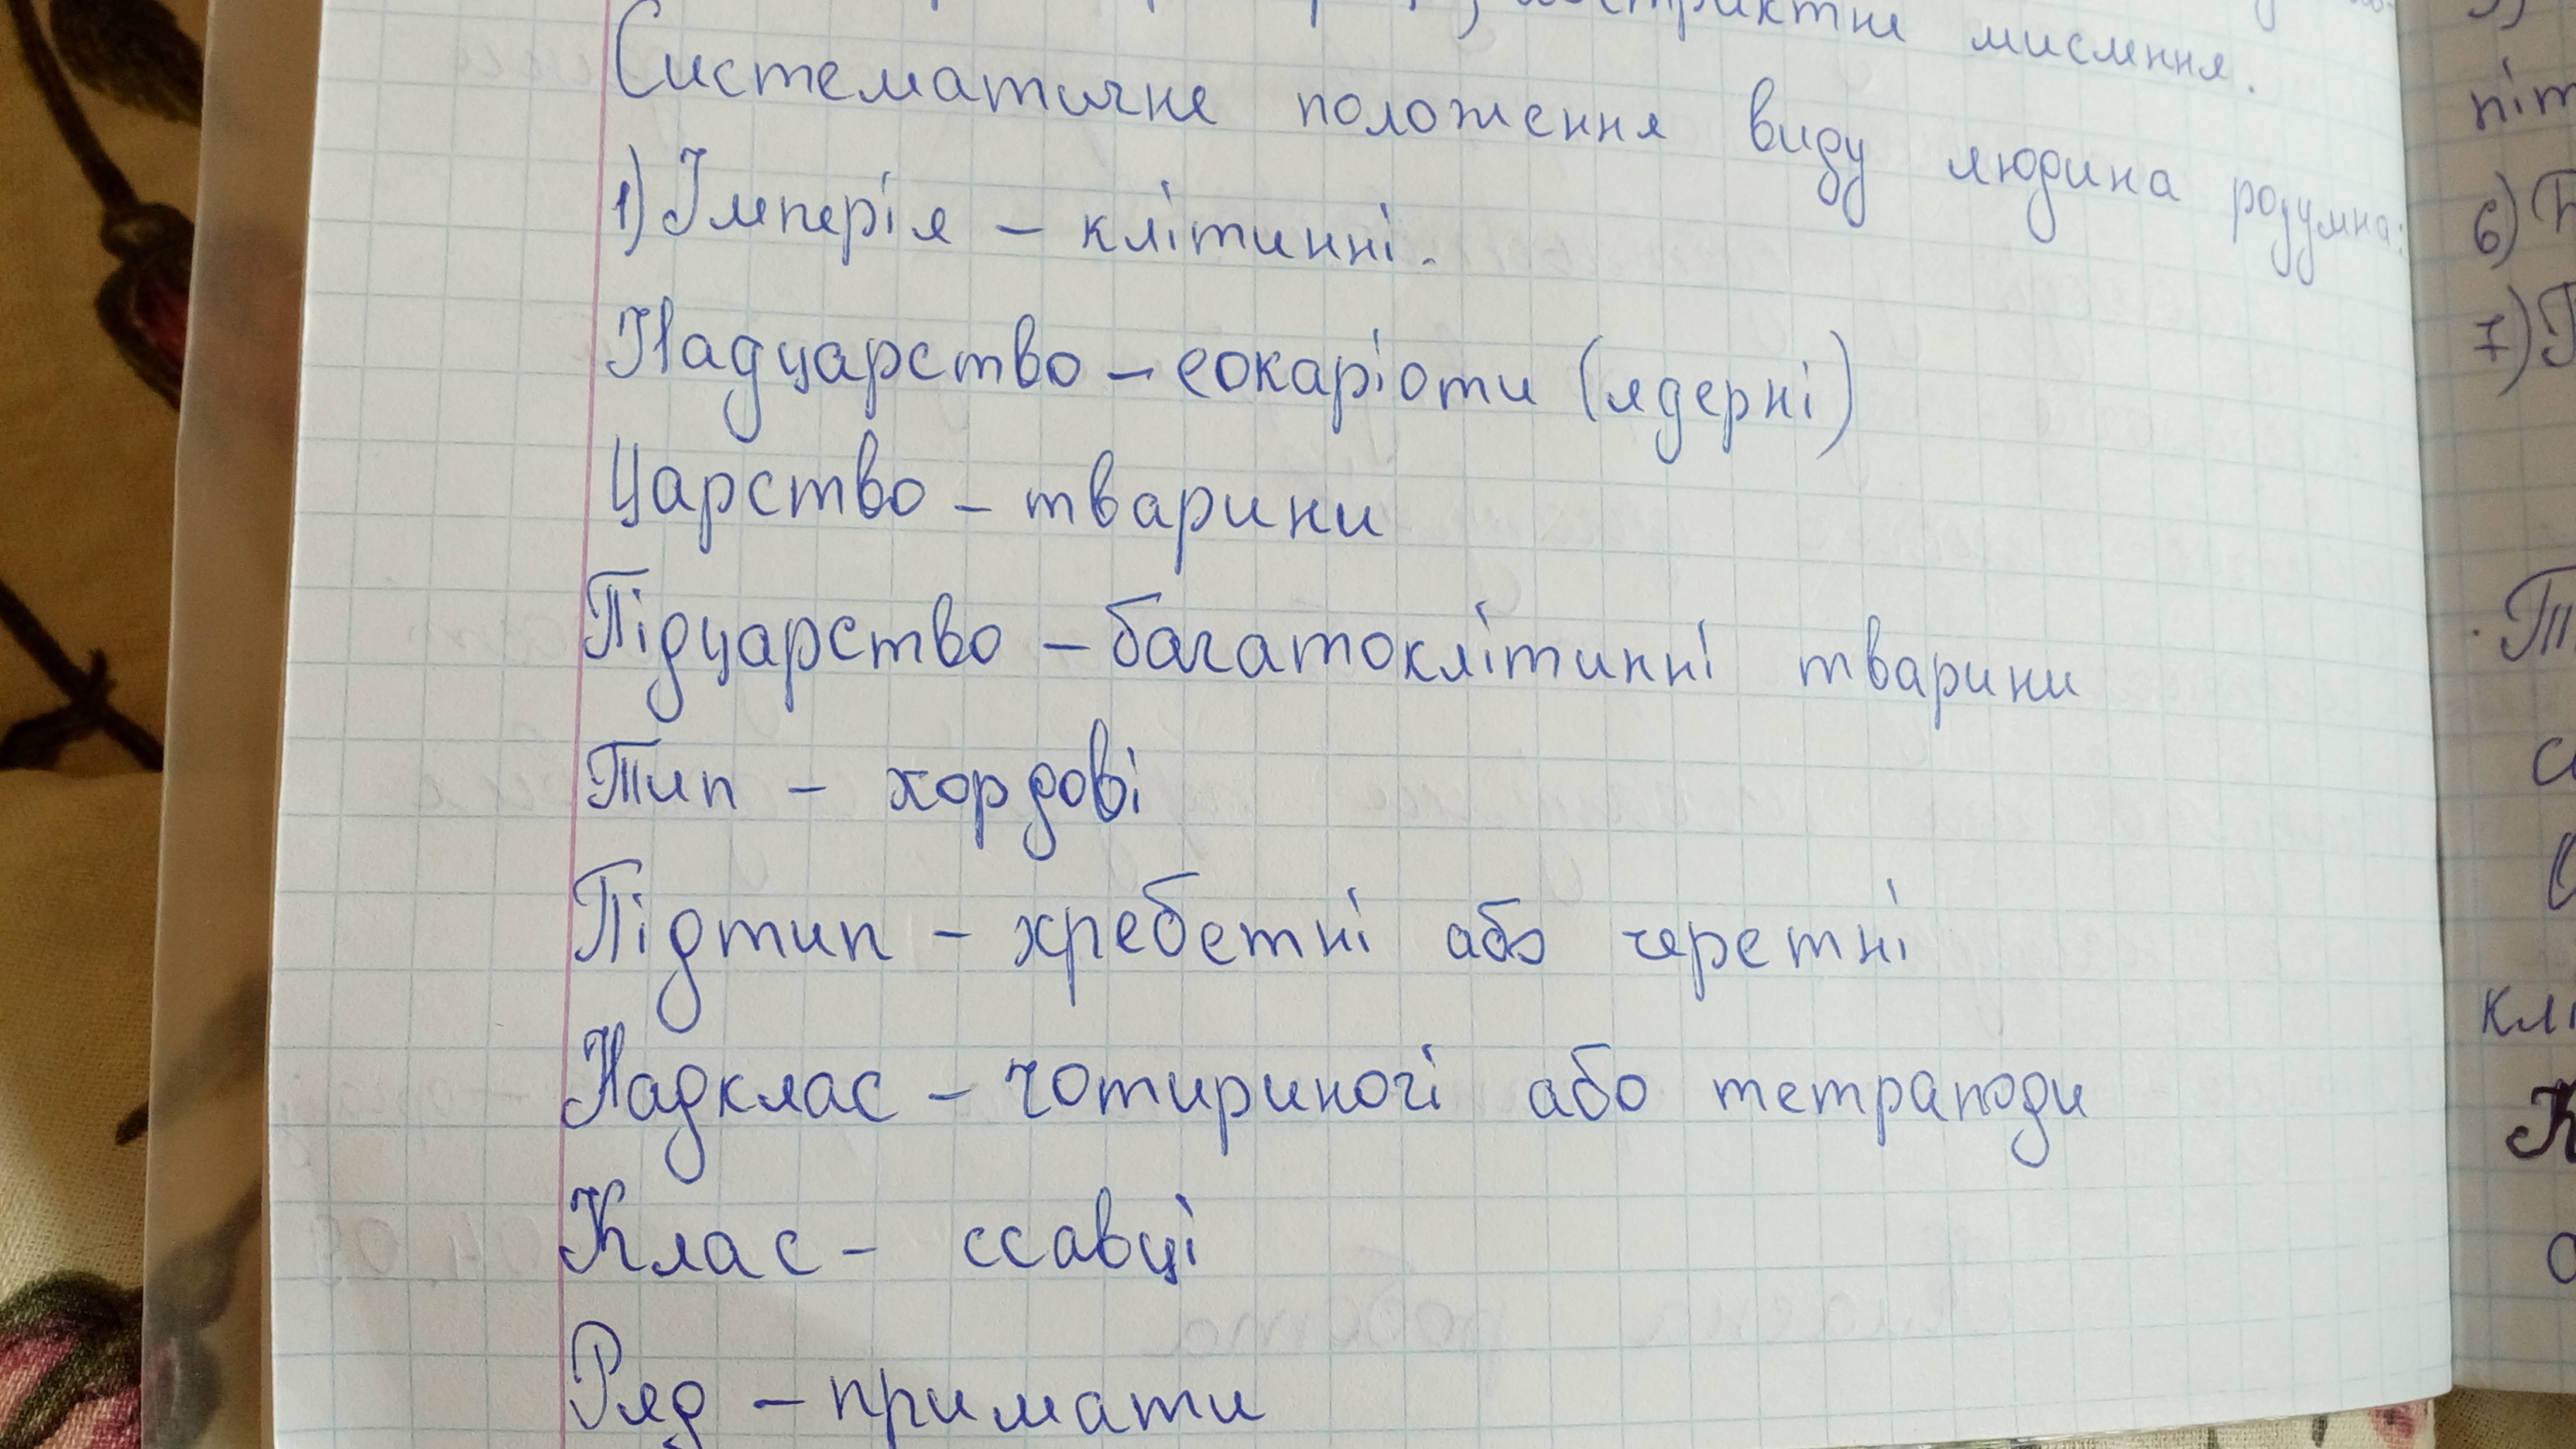 абстрактне мислення.
Систематичне положення виду людина розумна:
1) Імперія – клітинні.
Надцарство – еокаріоти (ядерні)
Царство – тварини
Підцарство – багатоклітинні тварини
Тип – хордові
Підтип – хребетні або черетні
Надклас – чотириногі або тетраподи
Клас – ссавці
Ряд – примати
6)
7)